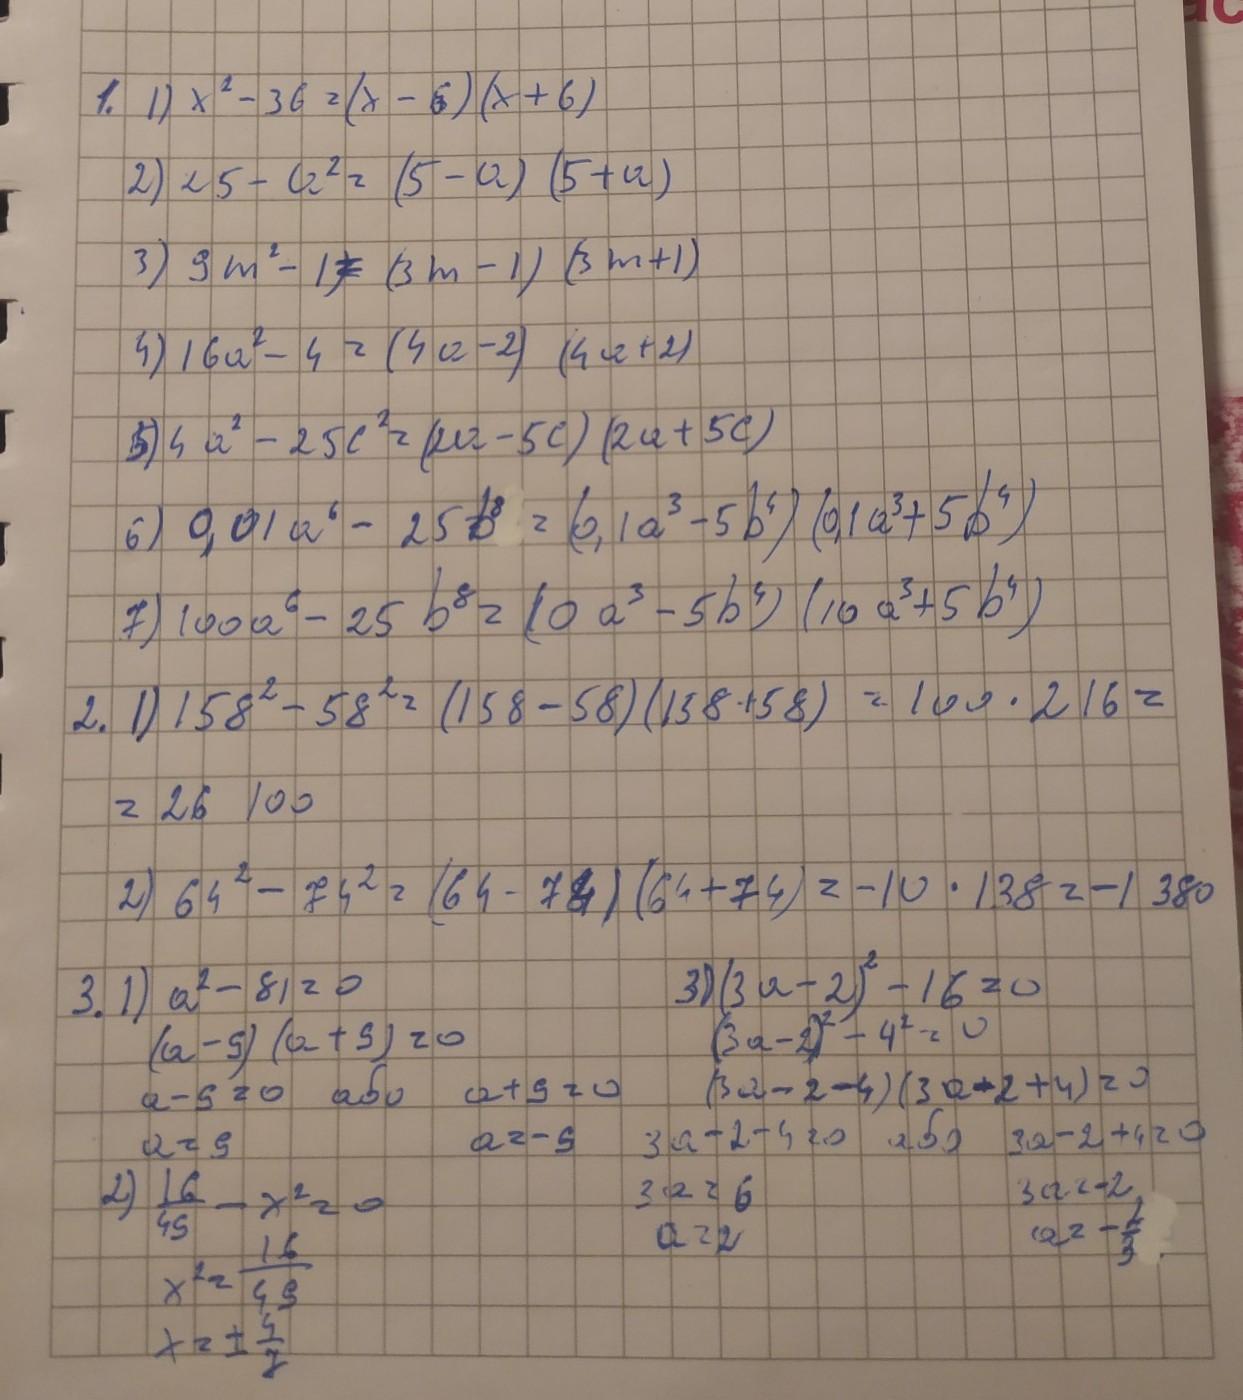 1. 1) x² - 36 = (x - 6)(x + 6)
2) 25 - a² = (5 - a) (5 + a)
3) 9m² - 1 = (3m - 1) (3m + 1)
4) 16a² - 4 = (4a - 2) (4a + 2)
5) 4a² - 25c² = (2a - 5c) (2a + 5c)
6) 0,01a⁶ - 25b⁸ = (0,1a³ - 5b⁴) (0,1a³ + 5b⁴)
7) 100a⁶ - 25b⁸ = (10a³ - 5b⁴) (10a³ + 5b⁴)
2. 1) 158² - 58² = (158 - 58)(158 + 58) = 100 · 216 =
= 26 100
2) 64² - 74² = (64 - 74) (64 + 74) = -10 · 138 = -1 380
3. 1) a² - 81 = 0
(a - 9) (a + 9) = 0
a - 9 = 0 або a + 9 = 0
a = 9 a = -9
2) 16/49 - x² = 0
x² = 16/49
x = ± 4/7
3) (3a - 2)² - 16 = 0
(3a - 2)² - 4² = 0
(3a - 2 - 4) (3a - 2 + 4) = 0
3a - 2 - 4 = 0 або 3a - 2 + 4 = 0
3a = 6 3a = -2
a = 2 a = -2/3